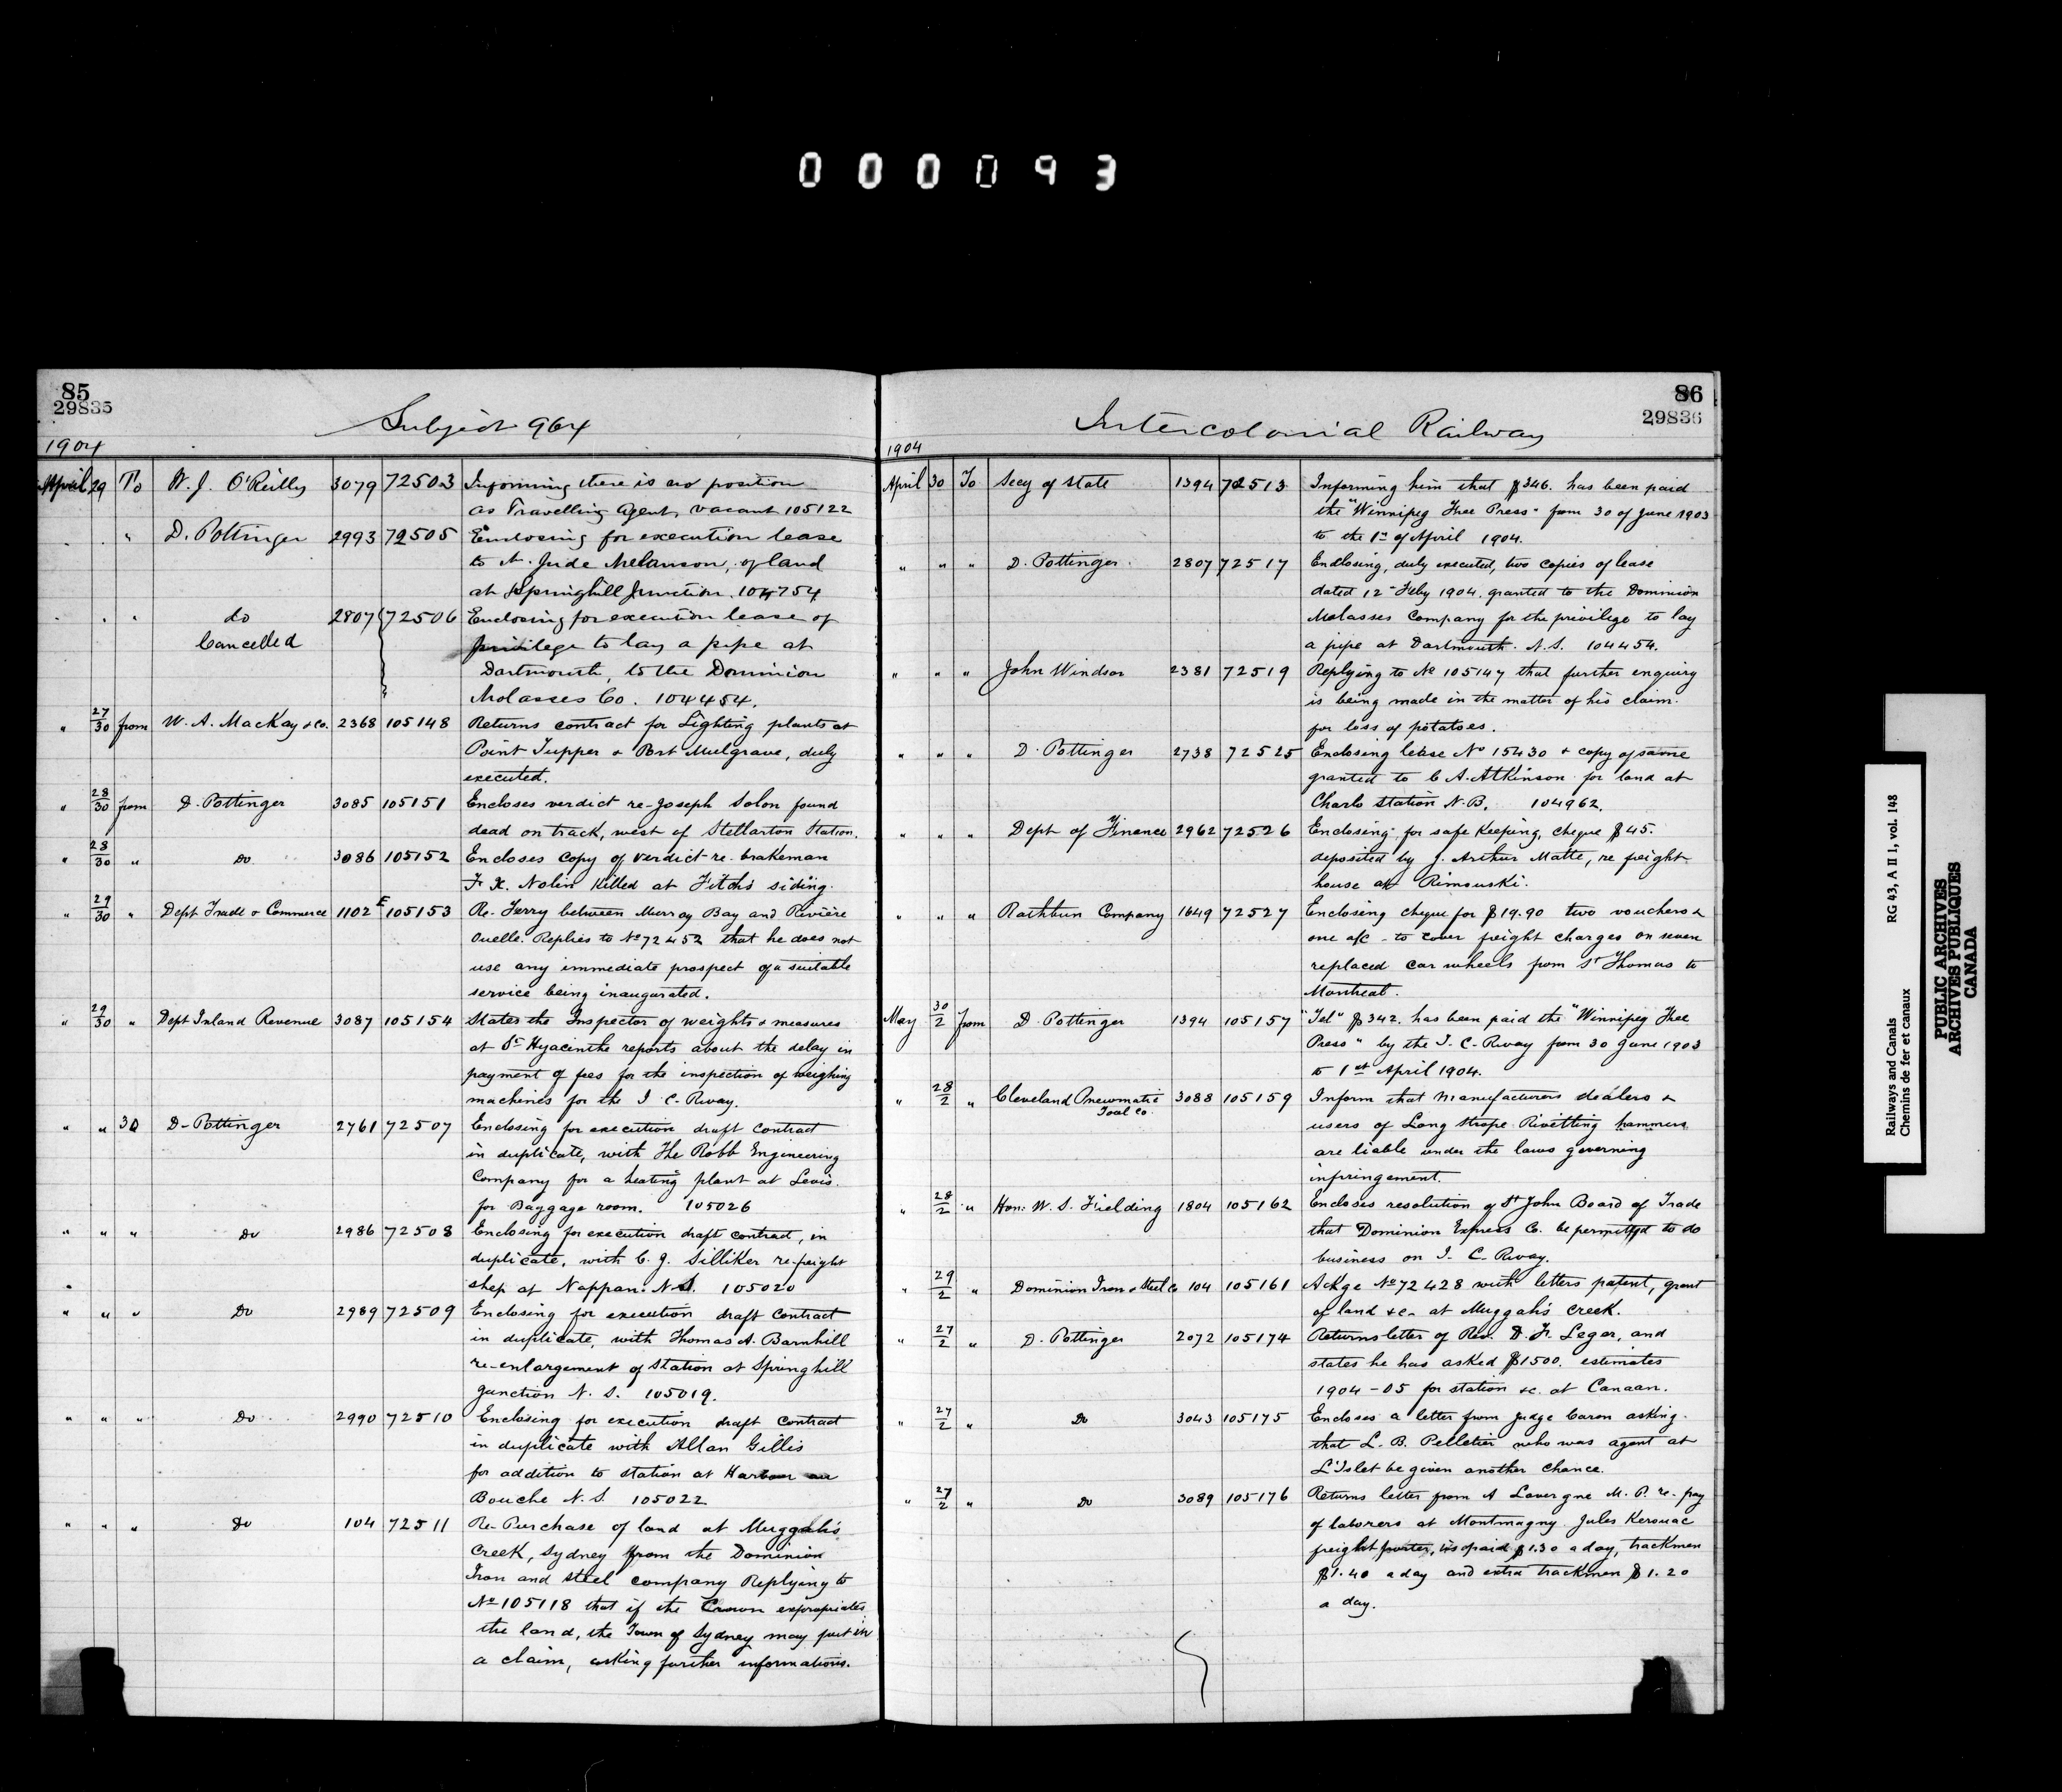 000093
85
29835
Subject 964
1904
April 29 To W. J. O'Reilly 3079 72503 Informing there is no position
as Travelling Agent, vacant 105122
" D. Pottinger 2993 72505 Enclosing for execution lease
to A. Jude Melanson, of land
at Springhill Junction. 104754
" do 2807 72506 Enclosing for execution lease of
Cancelled privilege to lay a pipe at
Dartmouth, to the Dominion
Molasses Co. 104454.
" 27/30 from W. A. MacKay & Co. 2368 105148 Returns contract for Lighting plants at
Point Tupper & Port Mulgrave, duly
executed.
" 28/30 from D. Pottinger 3085 105151 Encloses verdict re Joseph Solon found
dead on track, west of Stellarton Station.
" 28/30 " Do 3086 105152 Encloses copy of verdict re brakeman
F. X. Nolin killed at Fitch's siding.
" 29/30 " Dept Trade & Commerce 1102 E 105153 Re- Ferry between Murray Bay and Rivière
Ouelle. Replies to No 72452 that he does not
use any immediate prospect of a suitable
service being inaugurated.
" 29/30 " Dept Inland Revenue 3087 105154 States the Inspector of weights & measures
at St Hyacinthe reports about the delay in
payment of fees for the inspection of weighing
machines for the I. C. Rway.
" " 30 D. Pottinger 2761 72507 Enclosing for execution draft contract
in duplicate, with The Robb Engineering
Company for a heating plant at Levis.
for Baggage room. 105026
" " " Do 2986 72508 Enclosing for execution draft contract, in
duplicate, with C. J. Silliker re-freight
shep at Nappan. N.S. 105020
" " " Do 2989 72509 Enclosing for execution draft contract
in duplicate, with Thomas A. Barnhill
re-enlargement of station at Springhill
Junction N. S. 105019.
" " " Do 2990 72510 Enclosing for execution draft contract
in duplicate with Allan Gillis
for addition to station at Harbour au
Bouche N. S. 105022
" " " Do 104 72511 Re-Purchase of land at Muggah's
Creek, Sydney from the Dominion
Iron and Steel company Replying to
No 105118 that if the Crown expropriates
the land, the Town of Sydney may put in
a claim, asking further informations.
86
29836
Intercolonial Railway
1904
April 30 To Secy of State 1394 72513 Informing him that $346. has been paid
the "Winnipeg Free Press" from 30 of June 1903
to the 1st of April 1904.
" " " D. Pottinger 2807 72517 Enclosing, duly executed, two copies of lease
dated 12 Feby 1904. granted to the Dominion
Molasses Company for the privilege to lay
a pipe at Dartmouth. N.S. 104454.
" " " John Windsor 2381 72519 Replying to No 105147 that further enquiry
is being made in the matter of his claim.
for loss of potatoes.
" " " D. Pottinger 2738 72525 Enclosing lease No 15430 & copy of same
granted to C. A. Atkinson for land at
Charlo Station N.B. 104962.
" " " Dept of Finance 2962 72526 Enclosing for safe keeping, cheque $45.
deposited by J. Arthur Matte, re freight
house at Rimouski.
" " " Rathbun Company 1649 72527 Enclosing cheque for $19.90 two vouchers &
one a/c - to cover freight charges on seven
replaced car wheels from St Thomas to
Montreal.
May 30/2 from D. Pottinger 1394 105157 "Tel" $342. has been paid the "Winnipeg Free
Press" by the I. C. Rway from 30 June 1903
to 1st April 1904.
" 28/2 " Cleveland Pneumatic 3088 105159 Inform that manufacturers dealers &
Tool Co. users of Long Strope Rivetting hammers
are liable under the laws governing
infringement.
" 28/2 " Hon. W. S. Fielding 1804 105162 Encloses resolution of St John Board of Trade
that Dominion Express Co. be permitted to do
business on I. C. Rway.
" 29/2 " Dominion Iron & Steel Co 104 105161 Ackge No 72428 with letters patent, grant
of land &c. at Muggah's Creek.
" 27/2 " D. Pottinger 2072 105174 Returns letter of Rev. D. F. Leger, and
states he has asked $1500. estimates
1904-05 for station &c. at Canaan.
" 27/2 " Do 3043 105175 Encloses a letter from Judge Caron asking
that L. B. Pelletier who was agent at
L'Islet be given another chance.
" 27/2 " Do 3089 105176 Returns letter from A Lavergne M. P. re-pay
of laborers at Montmagny. Jules Kerouac
freight porter, is paid $1.30 a day, trackmen
$1.40 a day and extra trackmen $1.20
a day.
RG 43, A II 1, vol. 148
Railways and Canals
Chemins de fer et canaux
PUBLIC ARCHIVES
ARCHIVES PUBLIQUES
CANADA